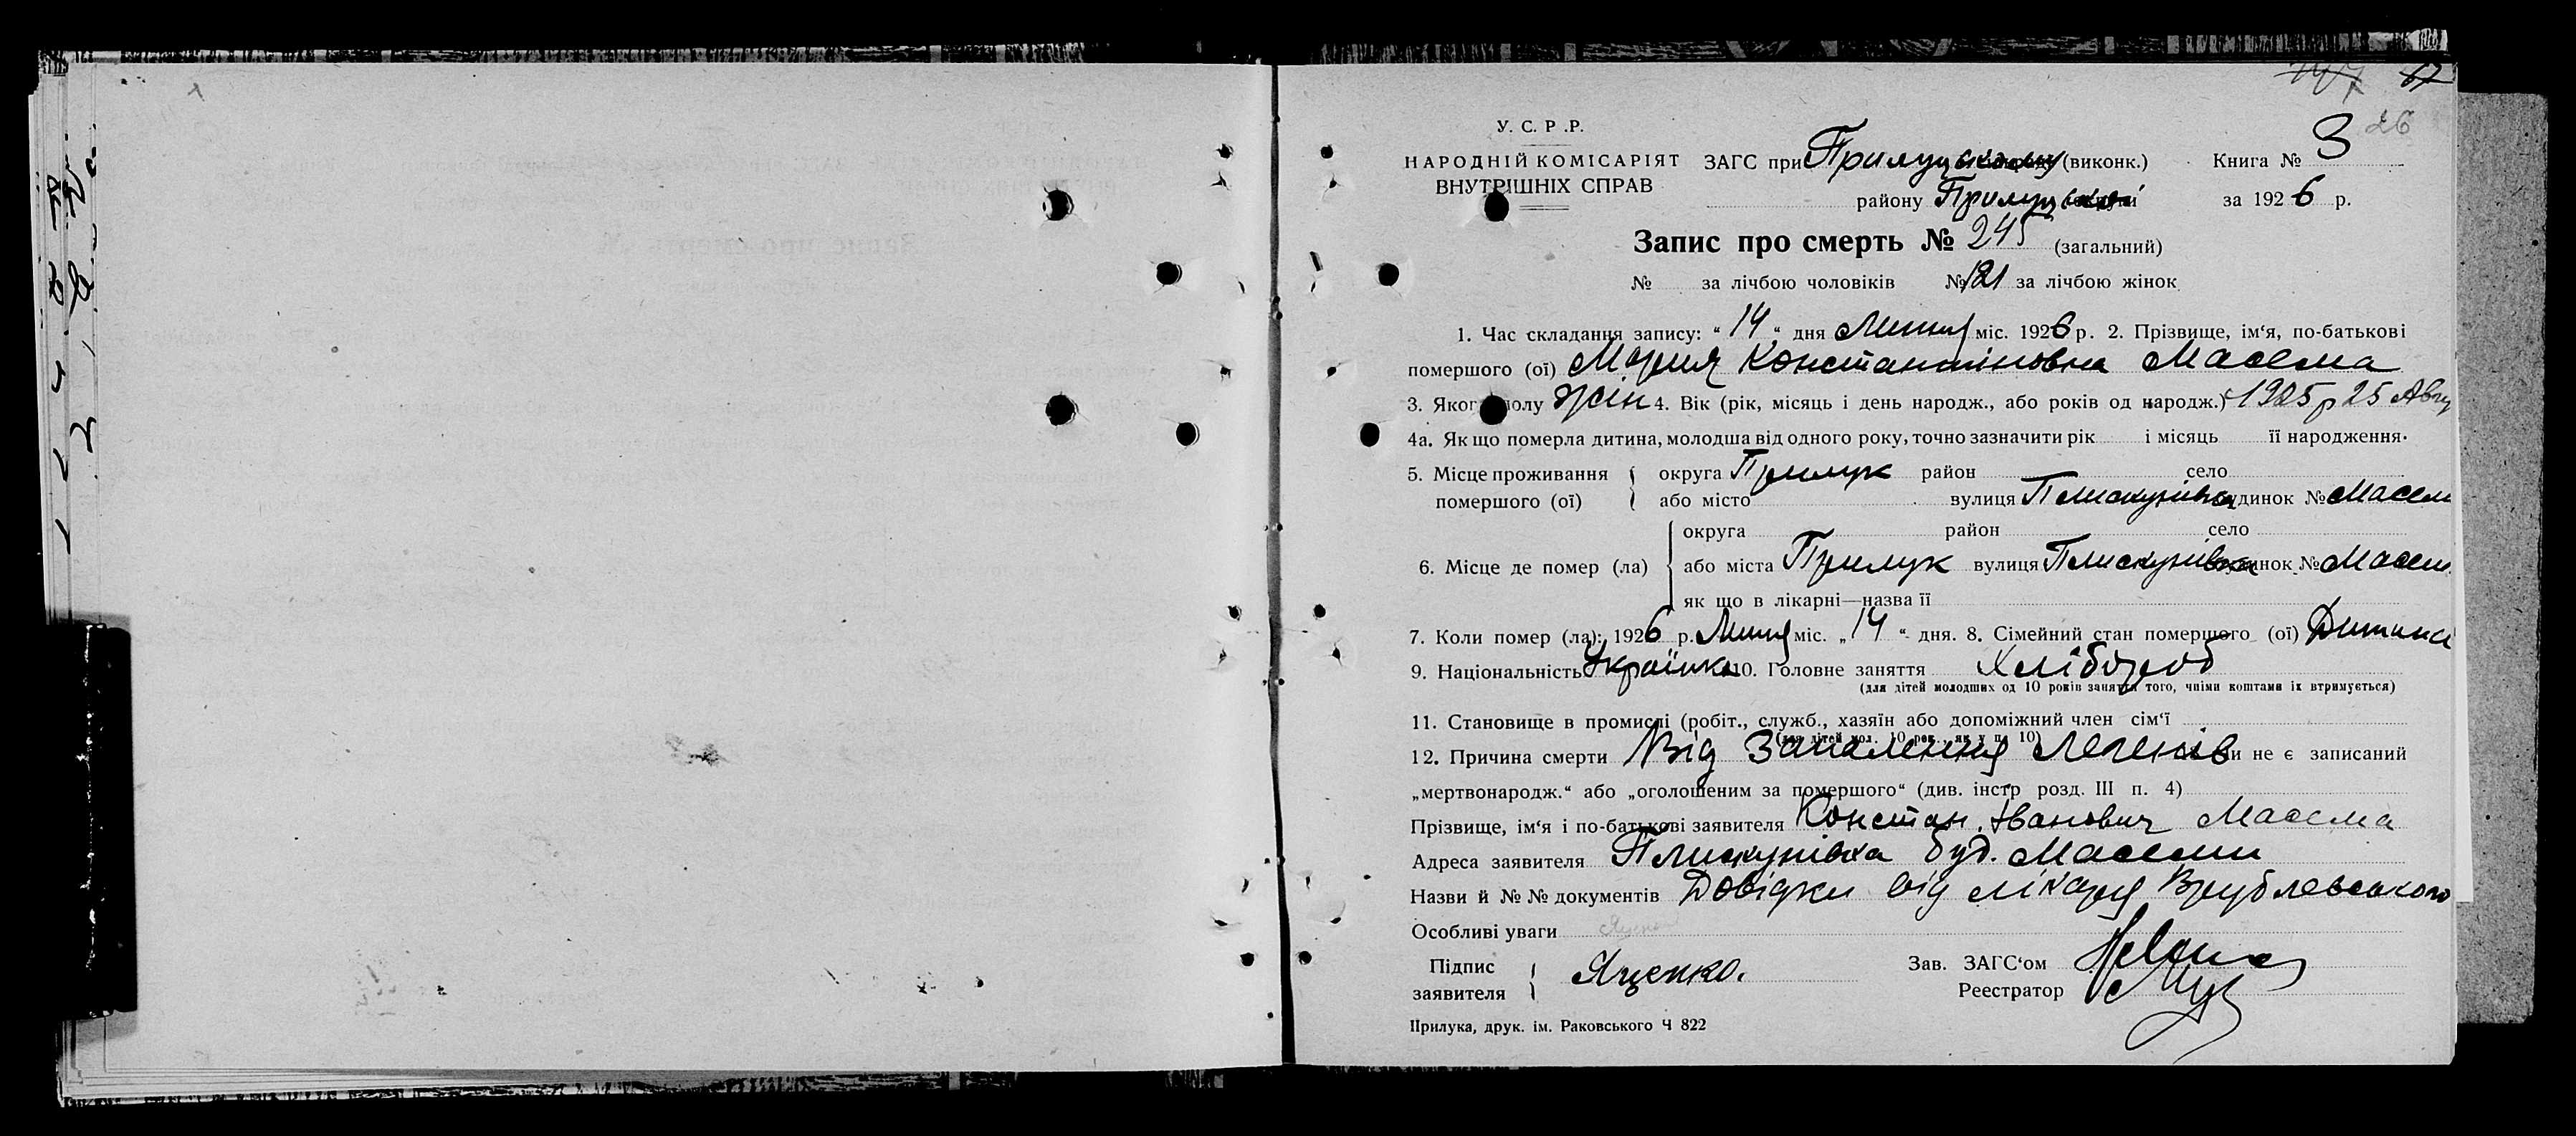 67
26
У. С. Р .Р.
НАРОДНІЙ КОМІСАРІЯТ ЗАГС при Прилуцькому (виконк.) Книга № 3
ВНУТРІШНІХ СПРАВ району Прилуцької за 1926 р.
Запис про смерть № 245 (загальний)
№ за лічбою чоловіків № 121 за лічбою жінок
1. Час складання запису: “ 14 “ дня Липня міс. 1926 р. 2. Прізвище, ім‘я, по-батькові
помершого (ої) Мария Константіновна Масема
3. Якого полу жін 4. Вік (рік, місяць і день народж., або років од народж.) 1925 р 25 Авгу
4а. Як що померла дитина, молодша від одного року, точно зазначити рік і місяць її народження.
5. Місце проживання округа Прилук район село
помершого (ої) або місто вулиця Плискунівка будинок № Масем
округа район село
6. Місце де помер (ла) або міста Прилук вулиця Плискунівка будинок № Масем
як що в лікарні—назва її
7. Коли помер (ла): 1926 р. Липня міс. „ 14 “ дня. 8. Сімейний стан помершого (ої) Дитина
9. Національність Українка 10. Головне заняття Хлібороб
(для дітей молодших од 10 років заняття того, чиїми коштами їх втримується)
11. Становище в промислі (робіт., служб., хазяїн або допоміжний член сім‘ї
(для дітей мол. 10 рок., як у п. 10)
12. Причина смерти Від Запалення Легенів чи не є записаний
„мертвонародж.“ або „оголошеним за помершого“ (див. інстр розд. III п. 4)
Прізвище, ім‘я і по-батькові заявителя Констан. Іванович Масема
Адреса заявителя Плискунівка буд. Масеми
Назви й № № документів Довідки від лікаря Врублевського
Особливі уваги
Підпис заявителя Яценко. Зав. ЗАГС‘ом
Реестратор
Прилука, друк. ім. Раковського Ч 822